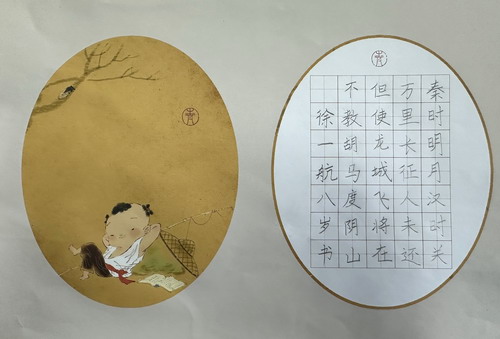 秦时明月汉时关
万里长征人未还
但使龙城飞将在
不教胡马度阴山
徐一航八岁书